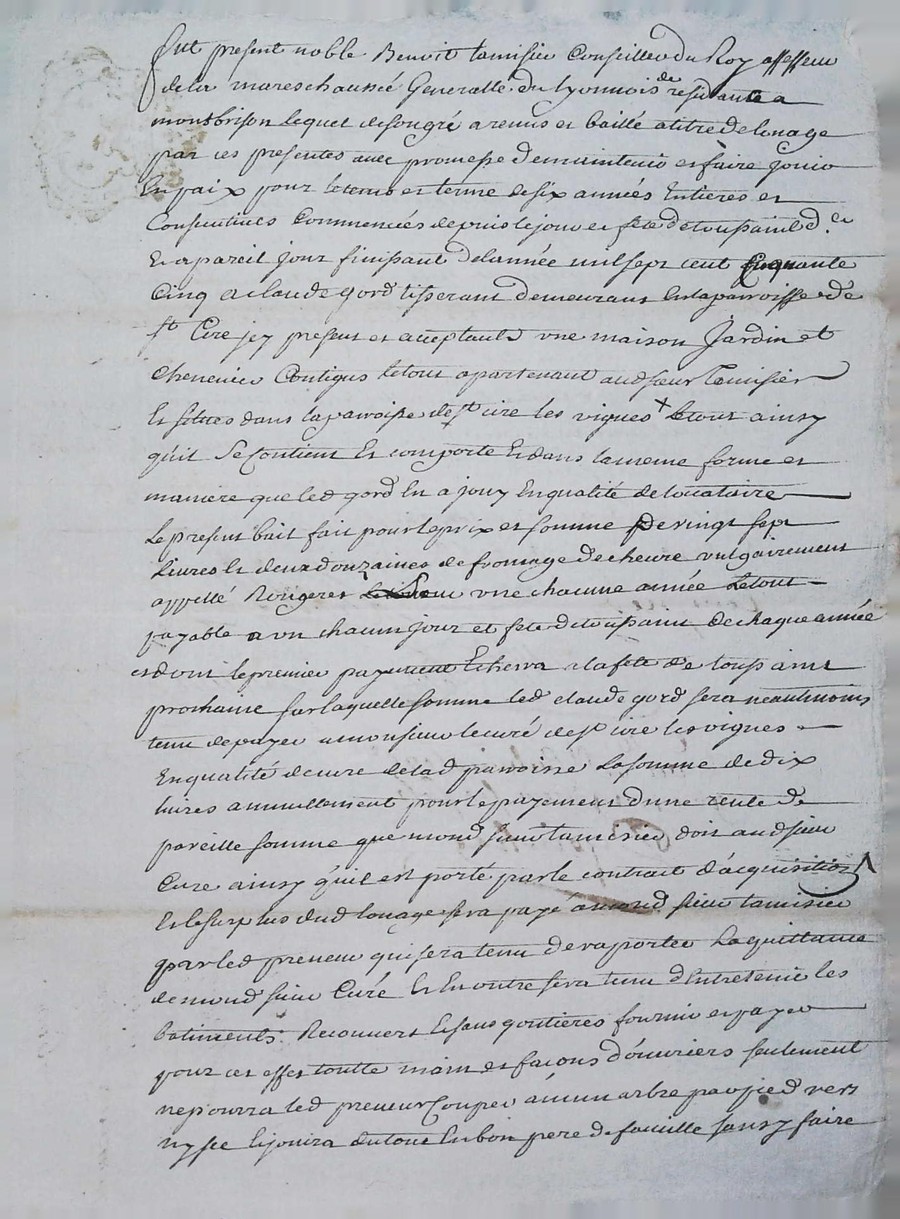 fut present noble Benoit tamisier Conseiller du Roy assesseur
de la mareschaussée Generalle du lyonnois de residante a
montbrison lequel de son gré a remis et baillé a titre de louage
par ces presentes avec promesse de maintenir et faire jouir
En paix pour le tems et terme de six années Entieres et
Consecutives Commencées depuis le jour et fete de toussaint d.er
Et a pareil jour finissant de l'année mil sept cent Cinquante
Cinq a claude gord tisserant demeurant En la parroisse de
st Cire jcy present et acceptant une maison Jardin et
Chenevier Contigus le tout apartenant aud sieur Tamisier
Et situes dans la parroisse de st cire les vignes + le tout ainsy
qu'il Se Contient Et comporte Et dans la meme forme et
maniere que led gord En a jouy En qualité de locataire
Le present bail fait pour le prix et somme De vingt sept
Livres Et deux douzaines de fromage de chevre vulgairement
appellé Rougeres une chacune année Le tout
payable a un chacun jour et fete de toussaint de chaque année
et dont le premier payement Echerra a la fete de toussaint
prochaine sur laquelle somme led claude gord sera neantmoins
tenu de payer a monsieur le curé de st cire les vignes
En qualité de cure de lad parroisse La somme de dix
livres annuellement pour le payement d'une rente de
pareille somme que mond sieur tamisier doit aud sieur
Cure ainsy qu'il est porté par le contrait d'acquisition
Et le surplus dud louage sera payé a mond sieur tamisier
par led preneur qui sera tenu de raporter La quittance
de mond sieur Curé Et En outre sera tenu d'Entretenir les
batiments Recouvert Et sans goutieres fournir et payer
pour cet effet toutte main et façons d'ouvriers seulement
ne pourra led preneur Couper aucun arbre par pied vers
ny sec Et jouira du tout En bon pere de famille sans y faire